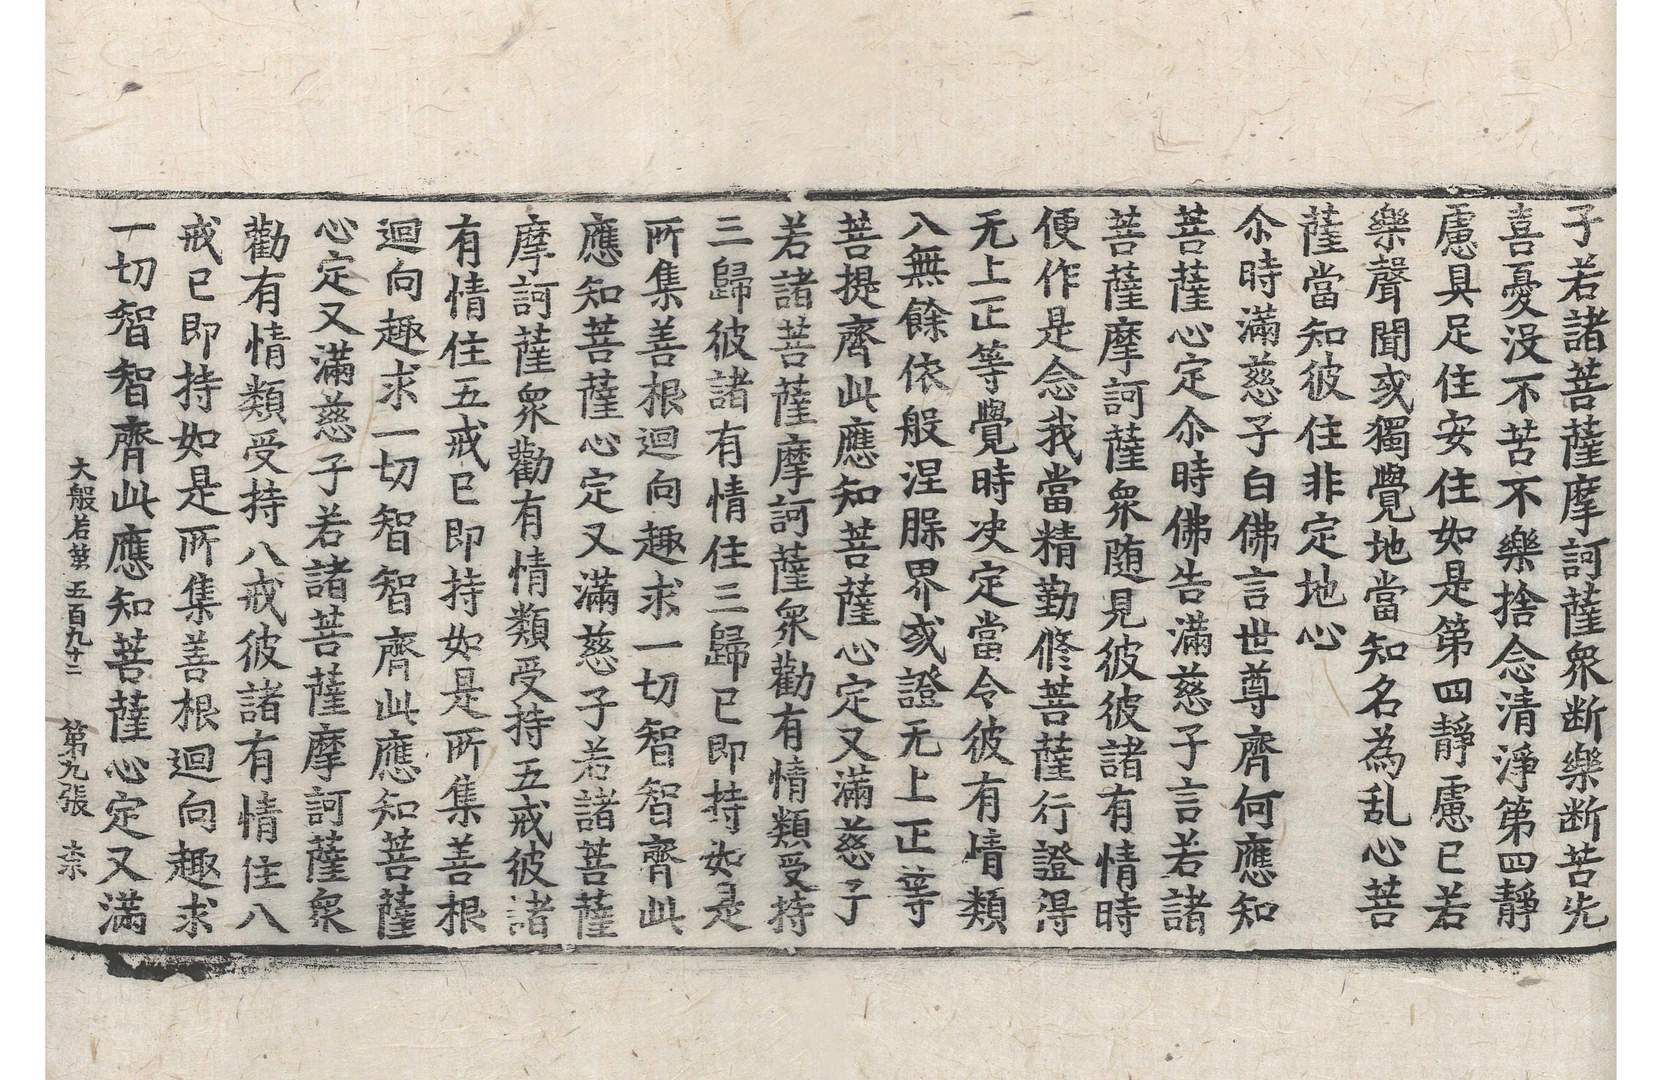 子若諸菩薩摩訶薩衆断樂断苦先
喜憂没不苦不樂捨念清淨第四靜
慮具足住安住如是第四靜慮已若
樂聲聞或獨覺地當知名為乱心菩
薩當知彼住非定地心
尒時滿慈子白佛言世尊齊何應知
菩薩心定尒時佛告滿慈子言若諸
菩薩摩訶薩衆随見彼彼諸有情時
便作是念我當精勤修菩薩行證得
无上正等覺時决定當令彼有情類
入無餘依般涅槃界或證无上正等
菩提齊此應知菩薩心定又滿慈子
若諸菩薩摩訶薩衆勸有情類受持
三歸彼諸有情住三歸已即持如是
所集善根迴向趣求一切智智齊此
應知菩薩心定又滿慈子若諸菩薩
摩訶薩衆勸有情類受持五戒彼諸
有情住五戒已即持如是所集善根
迴向趣求一切智智齊此應知菩薩
心定又滿慈子若諸菩薩摩訶薩衆
勸有情類受持八戒彼諸有情住八
戒已即持如是所集善根迴向趣求
一切智智齊此應知菩薩心定又滿
大般若第五百九十二 第九張 柰